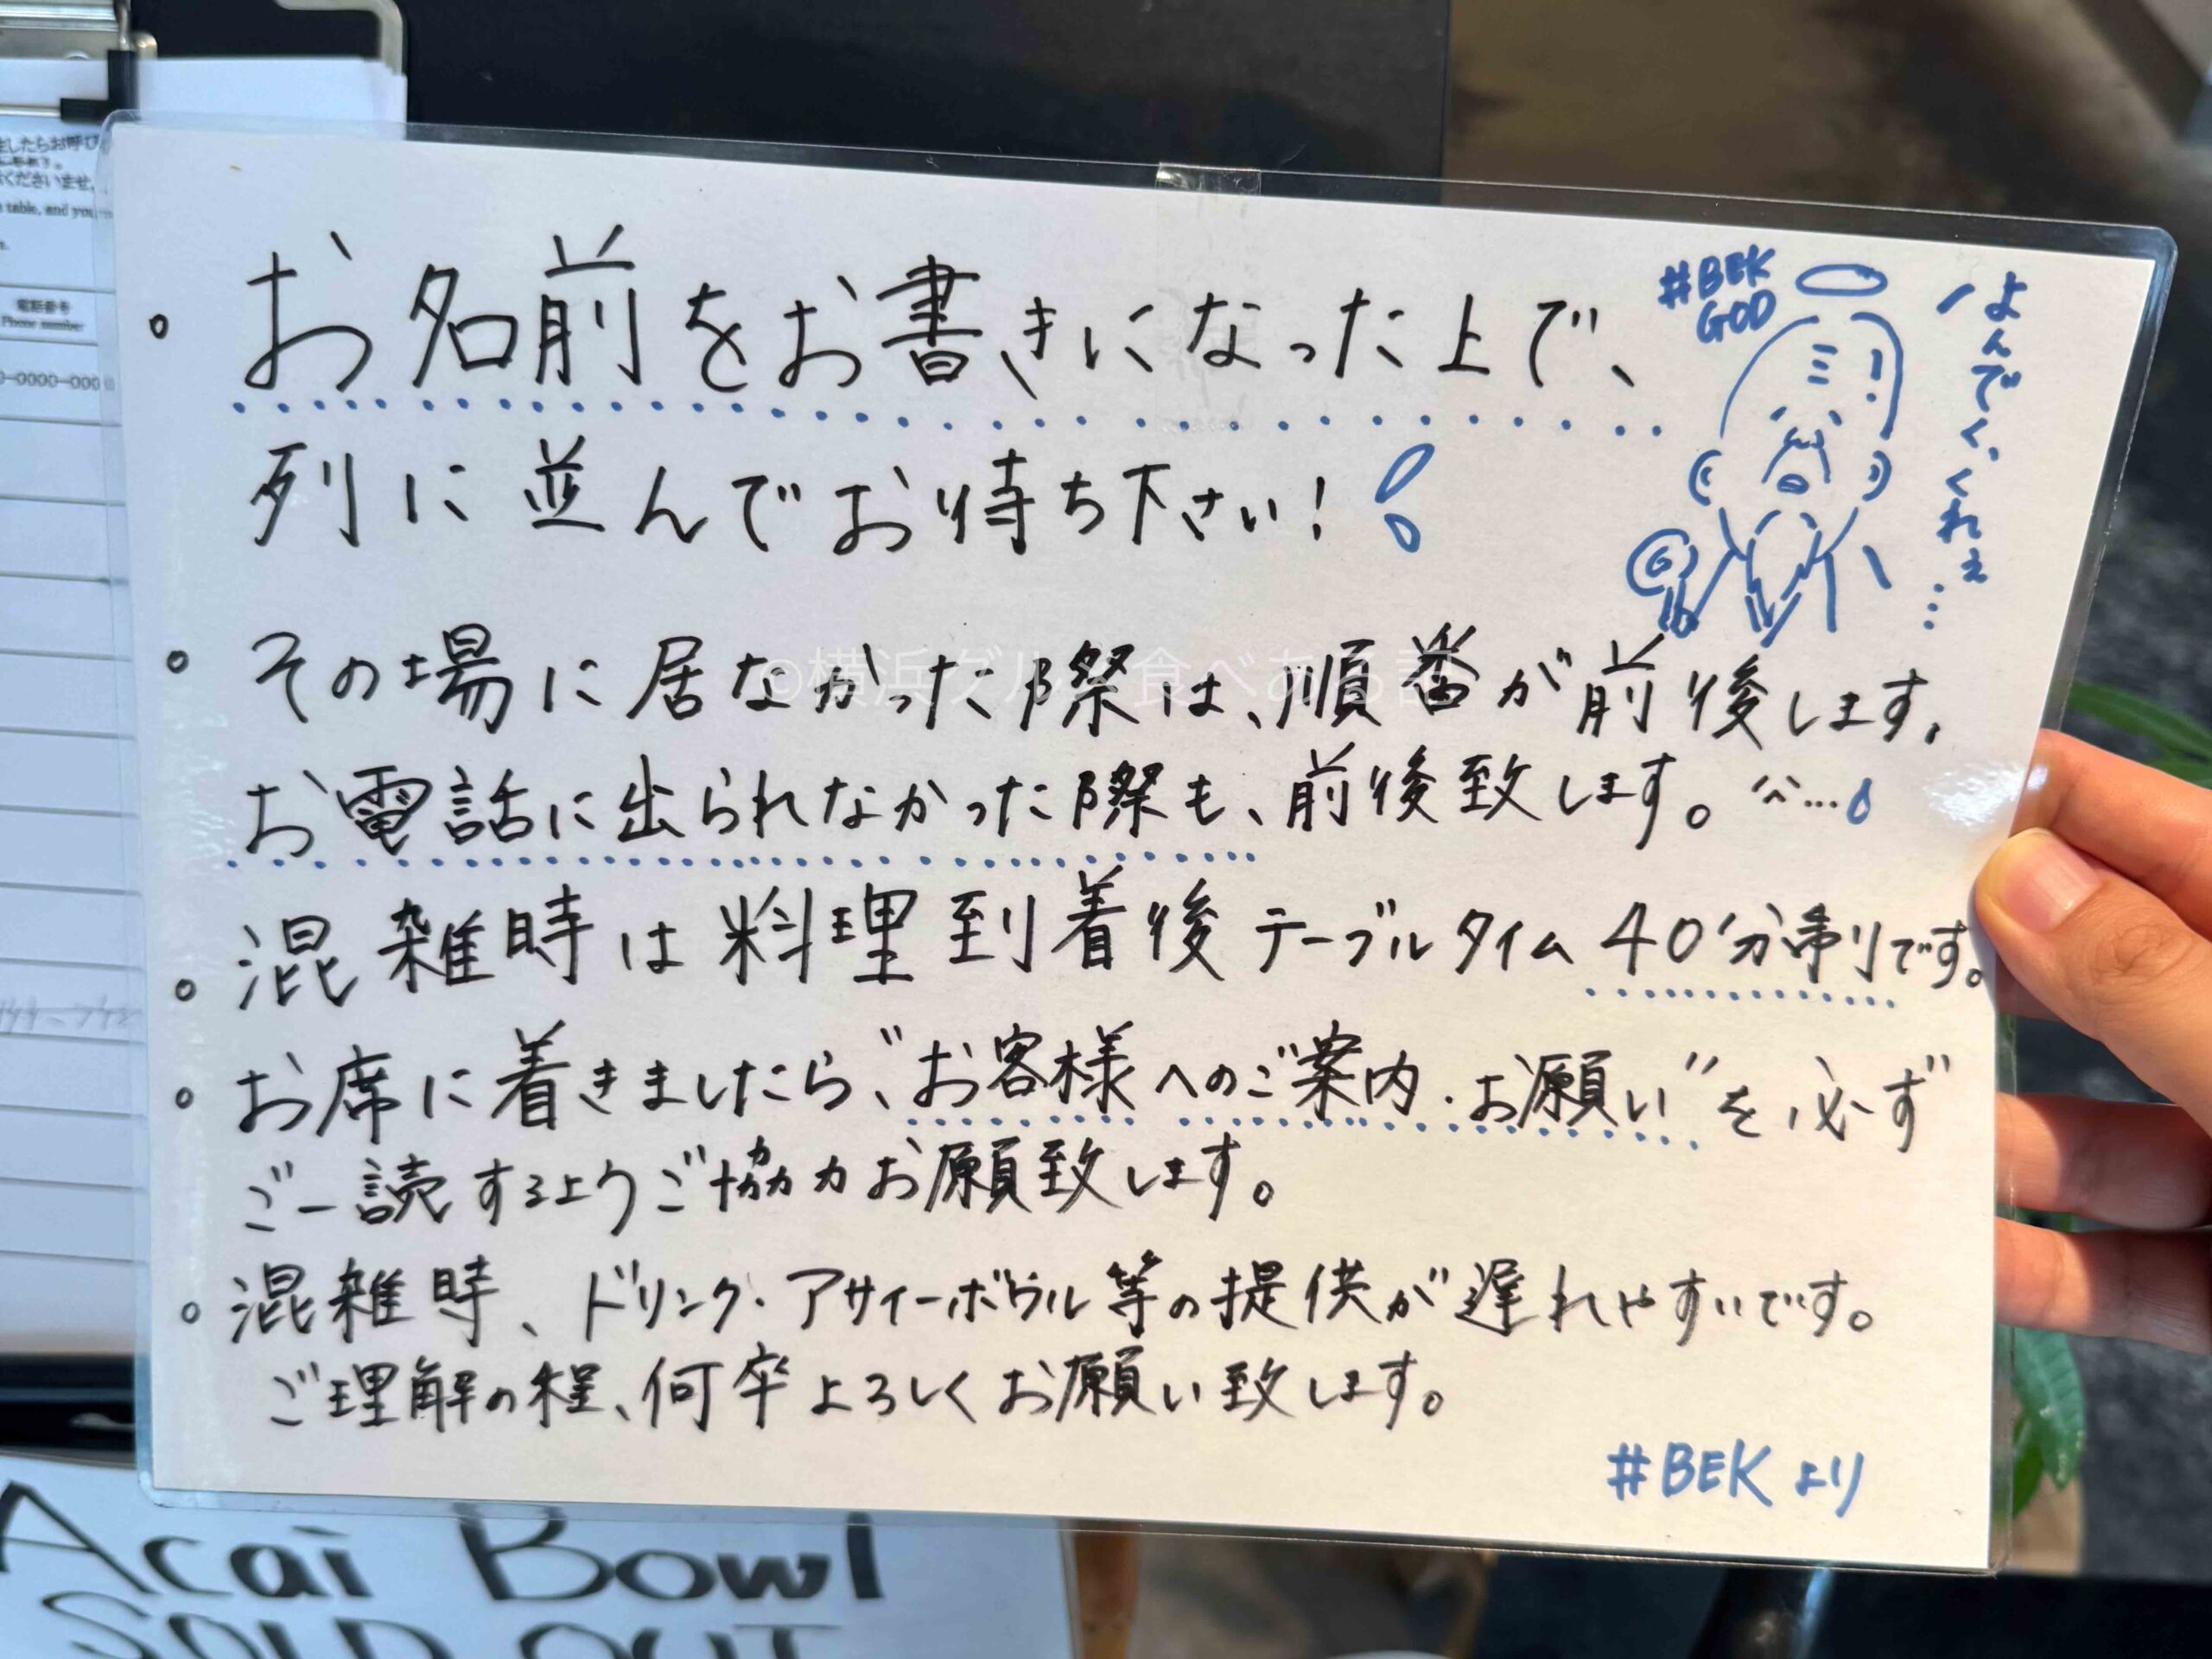 。お名前をお書きになった上で、
列に並んでお待ち下さい!
#BEK
GOD
よんでくれぇ…
。その場に居なかった際は、順番が前後します、
お電話に出られなかった際も、前後致します。^^…
。混雑時は料理到着後テーブルタイム40分制です。
。お席に着きましたら、"お客様へのご案内・お願い"を必ず
ご一読するようご協力お願致します。
。混雑時、ドリンク・アサイーボウル等の提供が遅れやすいです。
ご理解の程、何卒よろしくお願い致します。
#BEKより
©横浜グルメ食べある記
したらお呼び
くださいませ。
table, and you
電話番号
Phone number
0-0000-000
Acai Bowl
SOLD OUT